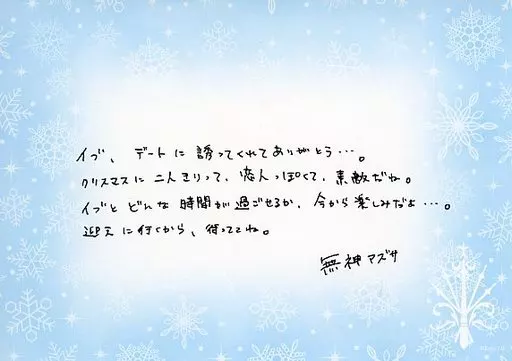 イブ、デートに誘ってくれてありがとう…。
クリスマスに二人きりって、恋人っぽくて、素敵だね。
イブとどんな時間が過ごせるか、今から楽しみだよ…。
迎えに行くから、待っててね。
無神アズサ